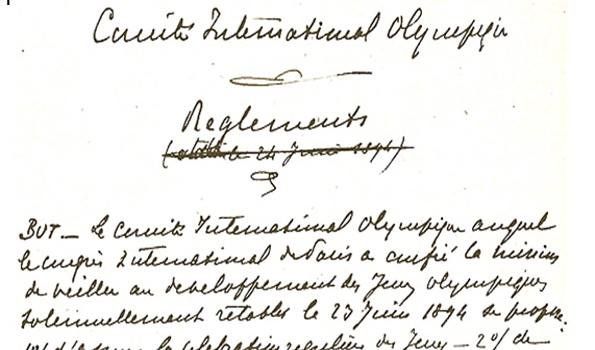 Comité International Olympique
Reglements
(établi le 24 Juin 1894)
BUT _ Le Comité International Olympique auquel
le congrès International de Paris a confié la mission
de veiller au developpement des Jeux olympiques
solennellement retablis le 23 Juin 1894 se propose:
1o/ d'assurer la celebration reguliere des Jeux _ 2o/ de